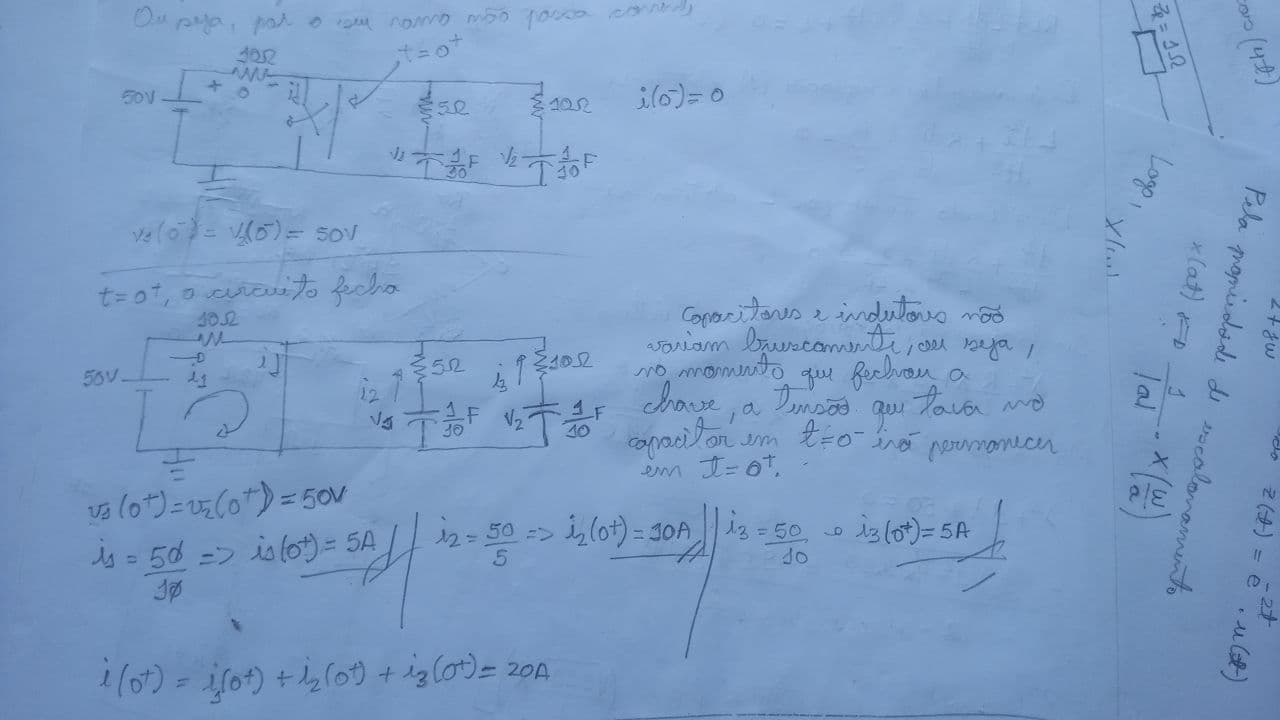 Ou seja, por o seu ramo não passa corrente
10Ω
t=0⁺
50V
+ 0 -
i
5Ω
10Ω
i(0⁻)=0
v₁
1/10 F
v₂
1/10 F
v₁(0⁻) = v₂(0⁻) = 50V
t=0⁺, o circuito fecha
10Ω
50V
i₁
i
i₂
5Ω
i₃
10Ω
v₁
1/10 F
v₂
1/10 F
Capacitores e indutores não
variam bruscamente, ou seja,
no momento que fechou a
chave, a tensão que tava no
capacitor em t=0⁻ irá permanecer
em t=0⁺.
v₁(0⁺)=v₂(0⁺)=50V
i₁ = 50/10 => i₁(0⁺) = 5A
i₂ = 50/5 => i₂(0⁺) = 10A
i₃ = 50/10 i₃(0⁺) = 5A
i(0⁺) = i₁(0⁺) + i₂(0⁺) + i₃(0⁺) = 20A
= 1Ω
(4t)
Logo,
Pela propriedade de escalonamento
x(at) ⇔ 1/|a| · X(w/a)
2+jw
z(t) = e^-2t · u(t)